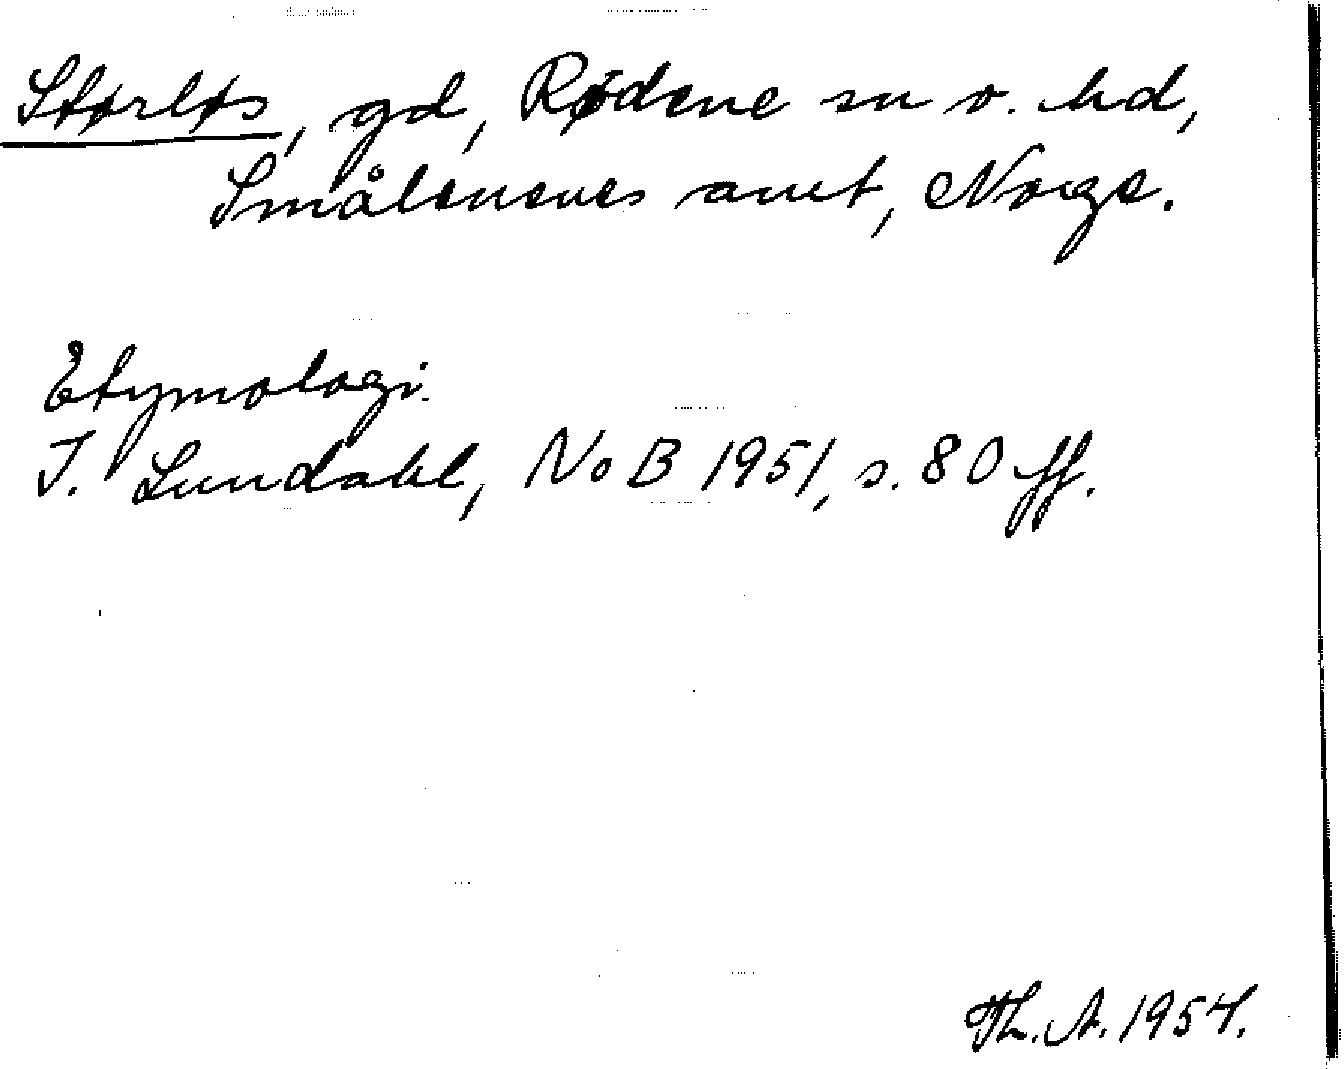 Størløs, gd, Rødene sn o. hd,
Smålenenes amt, Norge.
Etymologi.
I. Lundahl, NoB 1951, s. 80 ff.
Th. A. 1954.